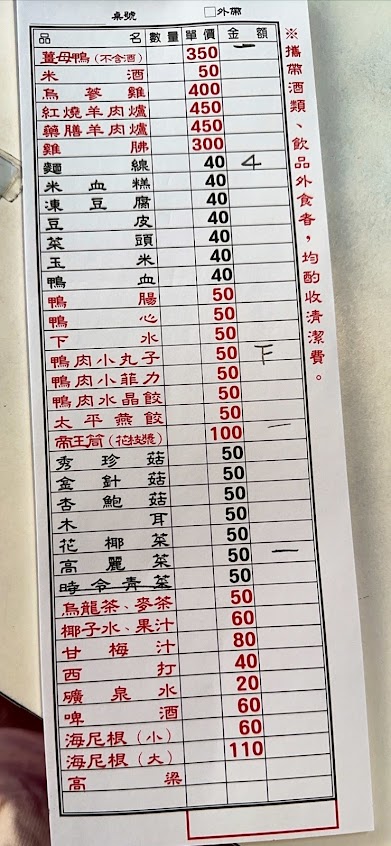 桌號 □外帶
品名 數量 單價 金額
薑母鴨(不含酒) 350 一
米酒 50
烏蔘雞 400
紅燒羊肉爐 450
藥膳羊肉爐 450
雞胇 300
麵線 40 4
米血糕 40
凍豆腐 40
豆皮 40
菜頭 40
玉米 40
鴨血 40
鴨腸 50
鴨心 50
下水 50
鴨肉小丸子 50 下
鴨肉小菲力 50
鴨肉水晶餃 50
太平燕餃 50
帝王筒(花枝漿) 100 一
秀珍菇 50
金針菇 50
杏鮑菇 50
木耳 50
花椰菜 50
高麗菜 50 一
時令青菜 50
烏龍茶、麥茶 50
椰子水、果汁 60
甘梅汁 80
西打 40
礦泉水 20
啤酒 60
海尼根(小) 60
海尼根(大) 110
高粱
※攜帶酒類、飲品外食者，均酌收清潔費。